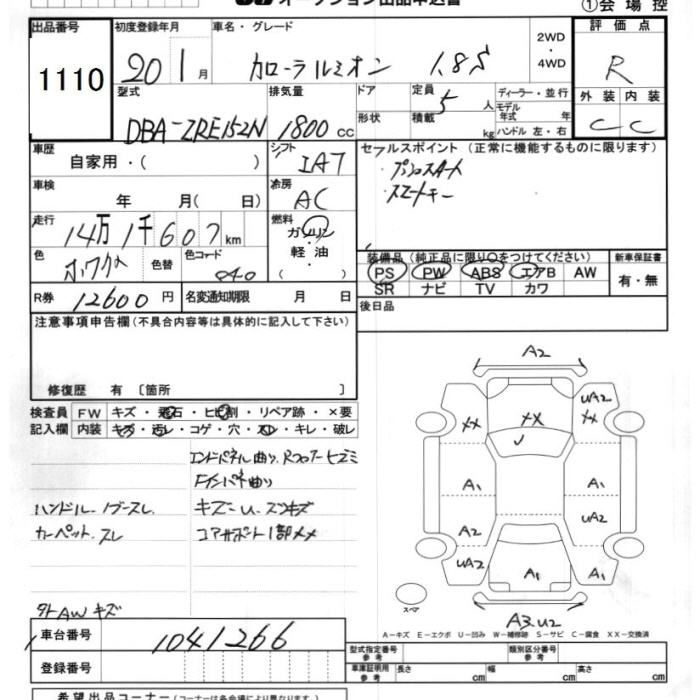 オークション出品申込書
①会場控
出品番号 初度登録年月 車名・グレード 評価点
1110 20 1月 カローラルミオン 1.8S 2WD・4WD R
型式 排気量 ドア 定員 ディーラー・並行 外装 内装
DBA-ZRE152N 1800cc 形状 5人 積載 kg モデル年式 年 ハンドル 左・右 C C
車歴 シフト セールスポイント (正常に機能するものに限ります)
自家用・( ) IAT プッシュスタート
車検 冷房 スマートキー
年 月( 日) AC
走行 燃料
14万1千607km ガソリン・軽油( )
色 色替 色コード 装備品(純正品に限り○をつけてください) 新車保証書
ホワイト 040 PS PW ABS エアB AW 有・無
SR ナビ TV カワ
R券 12600円 名変通知期限 月 日 後日品
注意事項申告欄(不具合内容等は具体的に記入して下さい)
修復歴 有〔箇所 〕
検査員 FW キズ・飛石・ヒビ割・リペア跡・×要
記入欄 内装 キズ・汚レ・コゲ・穴・スレ・キレ・破レ
エンドパネル曲り、Rフロアーヒズミ
Fインパネ曲り
ハンドル・ノブースレ キズ-U.スリキズ
カーペット.スレ コアサポート1部メメ
外AWキズ
A2
UA2
XX XX XX
A1 A1
A2 UA2
UA2 A1 A1
スペア
A3.U2
A-キズ E-エクボ U-凹み W-補修跡 S-サビ C-腐食 XX-交換済
車台番号 1041266
登録番号
型式指定番号 参考 類別区分番号 参考
車庫証明用 参考 長さ cm 幅 cm 高さ cm
希望出品コーナー(コーナーは各会場により異なります)